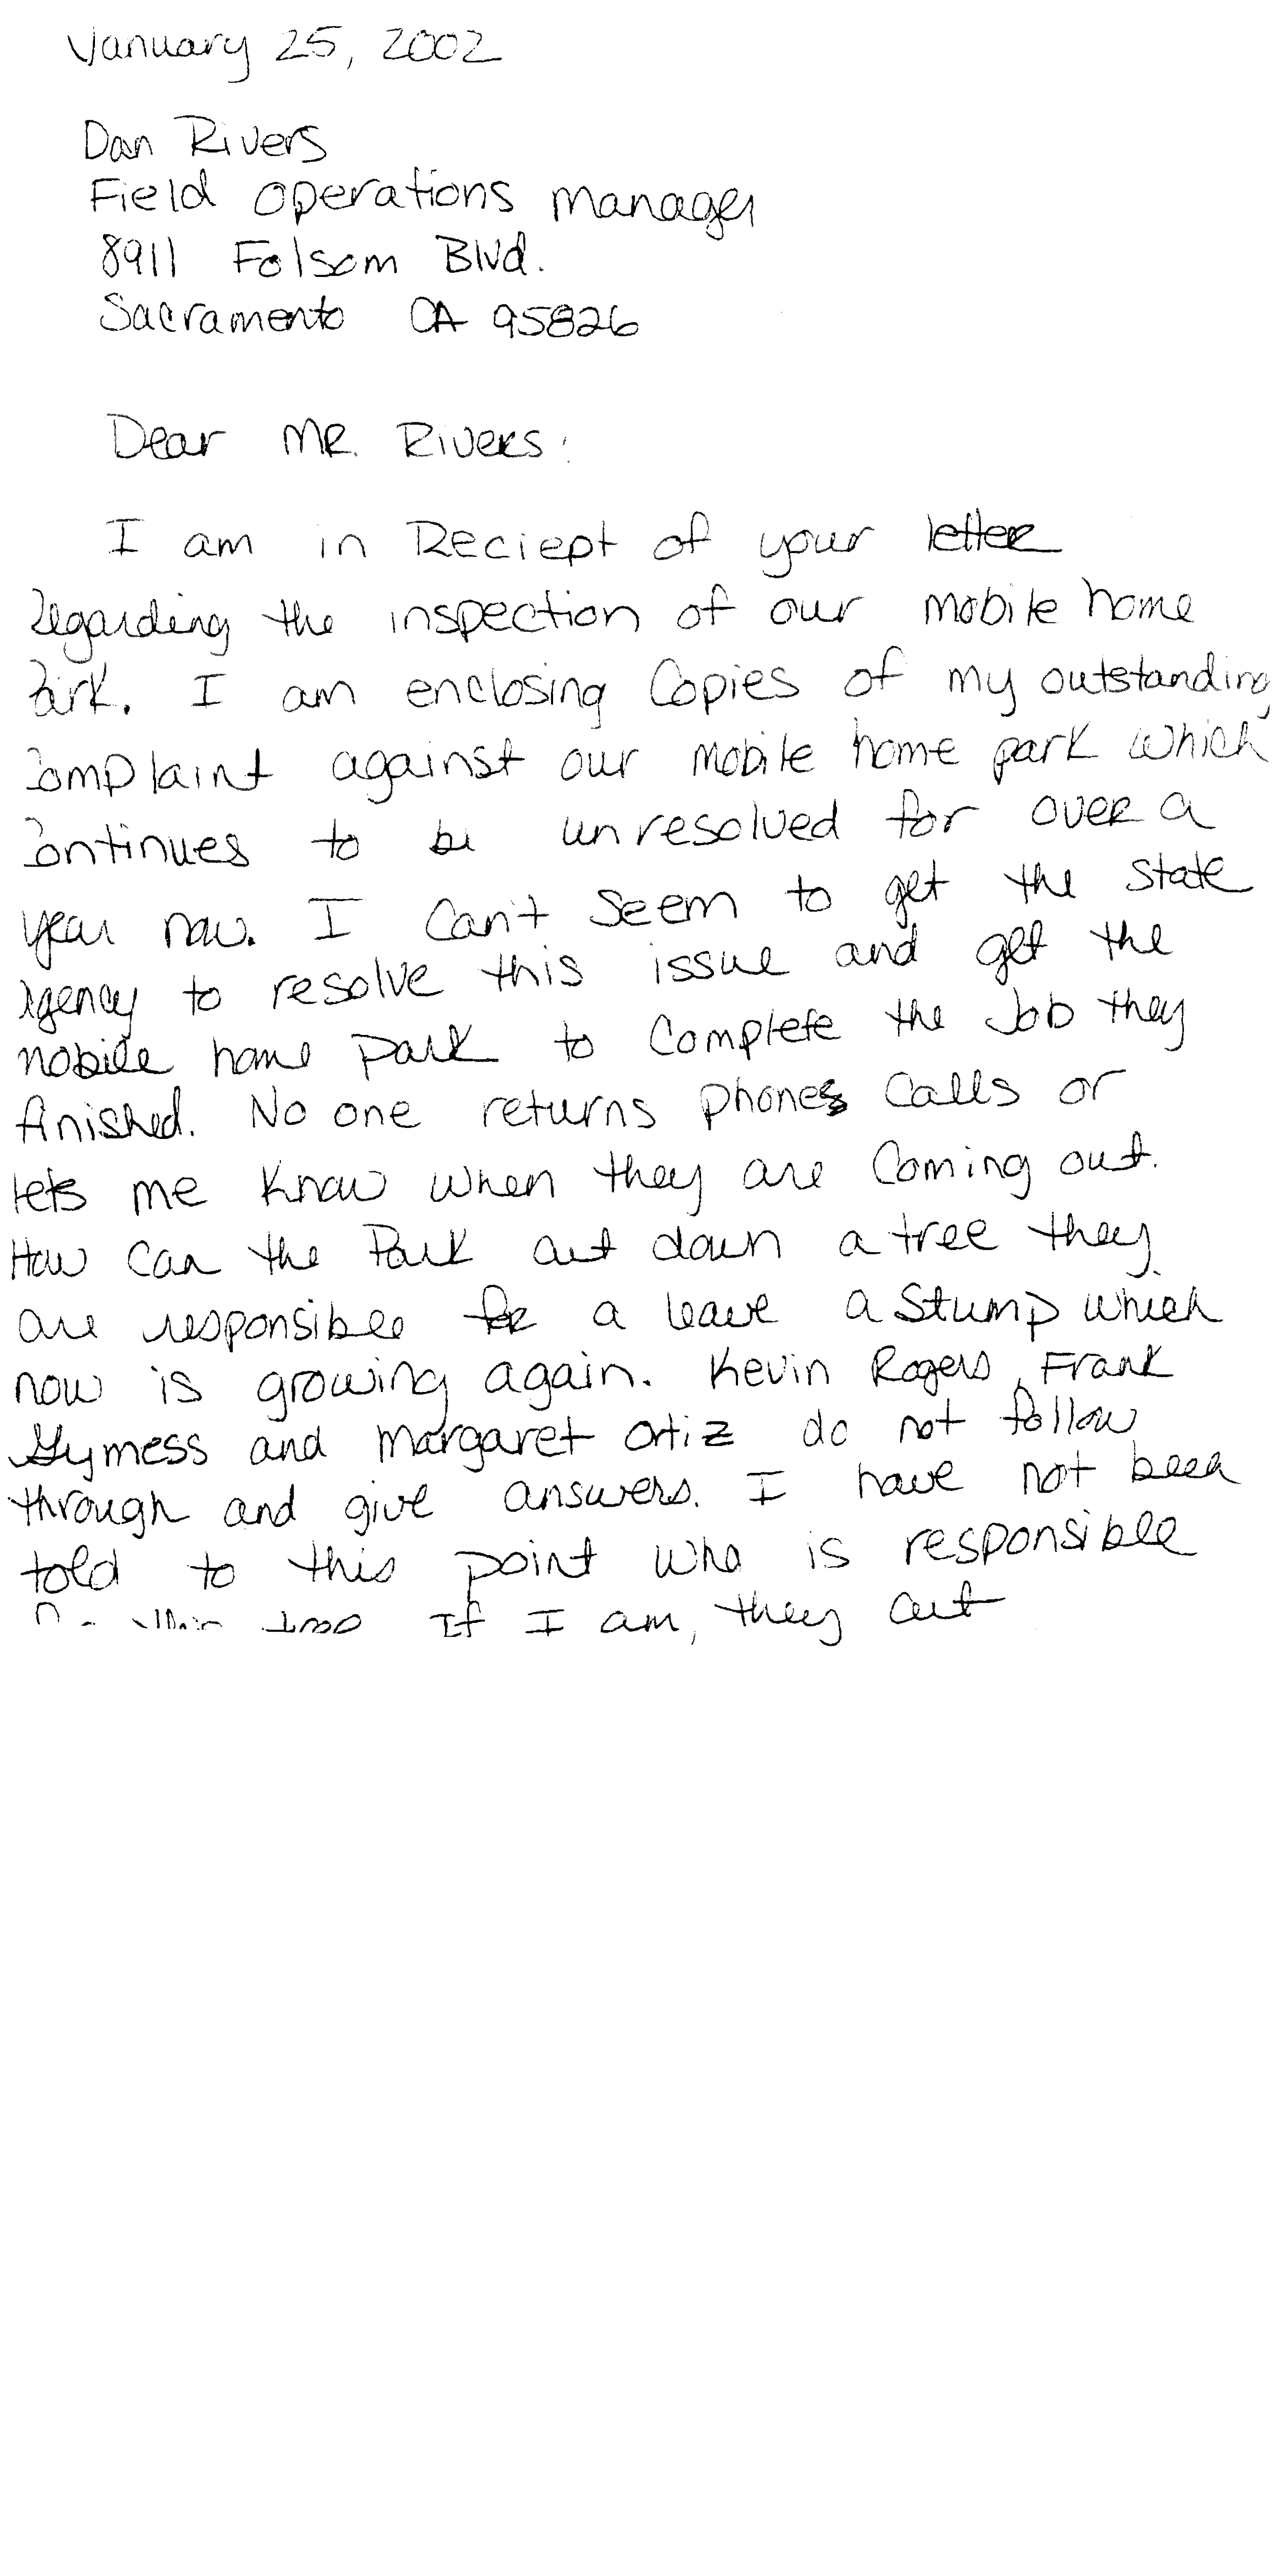 January 25, 2002
Dan Rivers
Field Operations Manager
8911 Folsom Blvd.
Sacramento CA 95826
Dear MR. Rivers:
I am in Reciept of your letter
regarding the inspection of our mobile home
park. I am enclosing Copies of my outstanding
Complaint against our mobile home park which
Continues to be unresolved for over a
year now. I Can't Seem to get the State
agency to resolve this issue and get the
mobile home park to Complete the Job they
finished. No one returns phones Calls or
lets me know when they are Coming out.
How Can the Park cut down a tree they
are responsible for a leave a Stump which
now is growing again. Kevin Rogers, Frank
Gymess and Margaret Ortiz do not follow
through and give answers. I have not been
told to this point who is responsible
If I am, they cut